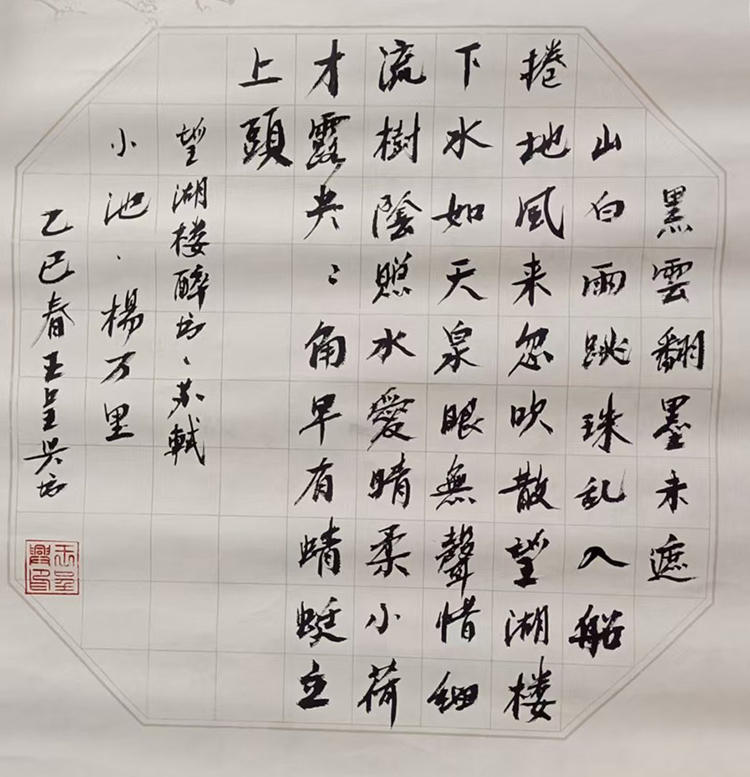 黑雲翻墨未遮
山白雨跳珠乱入船
捲地風来忽吹散望湖楼
下水如天泉眼無聲惜細
流樹陰照水愛晴柔小荷
才露尖々角早有蜻蜓立
上頭
望湖楼醉书、苏軾
小池、楊万里
乙巳春王呈兴书
王呈興印